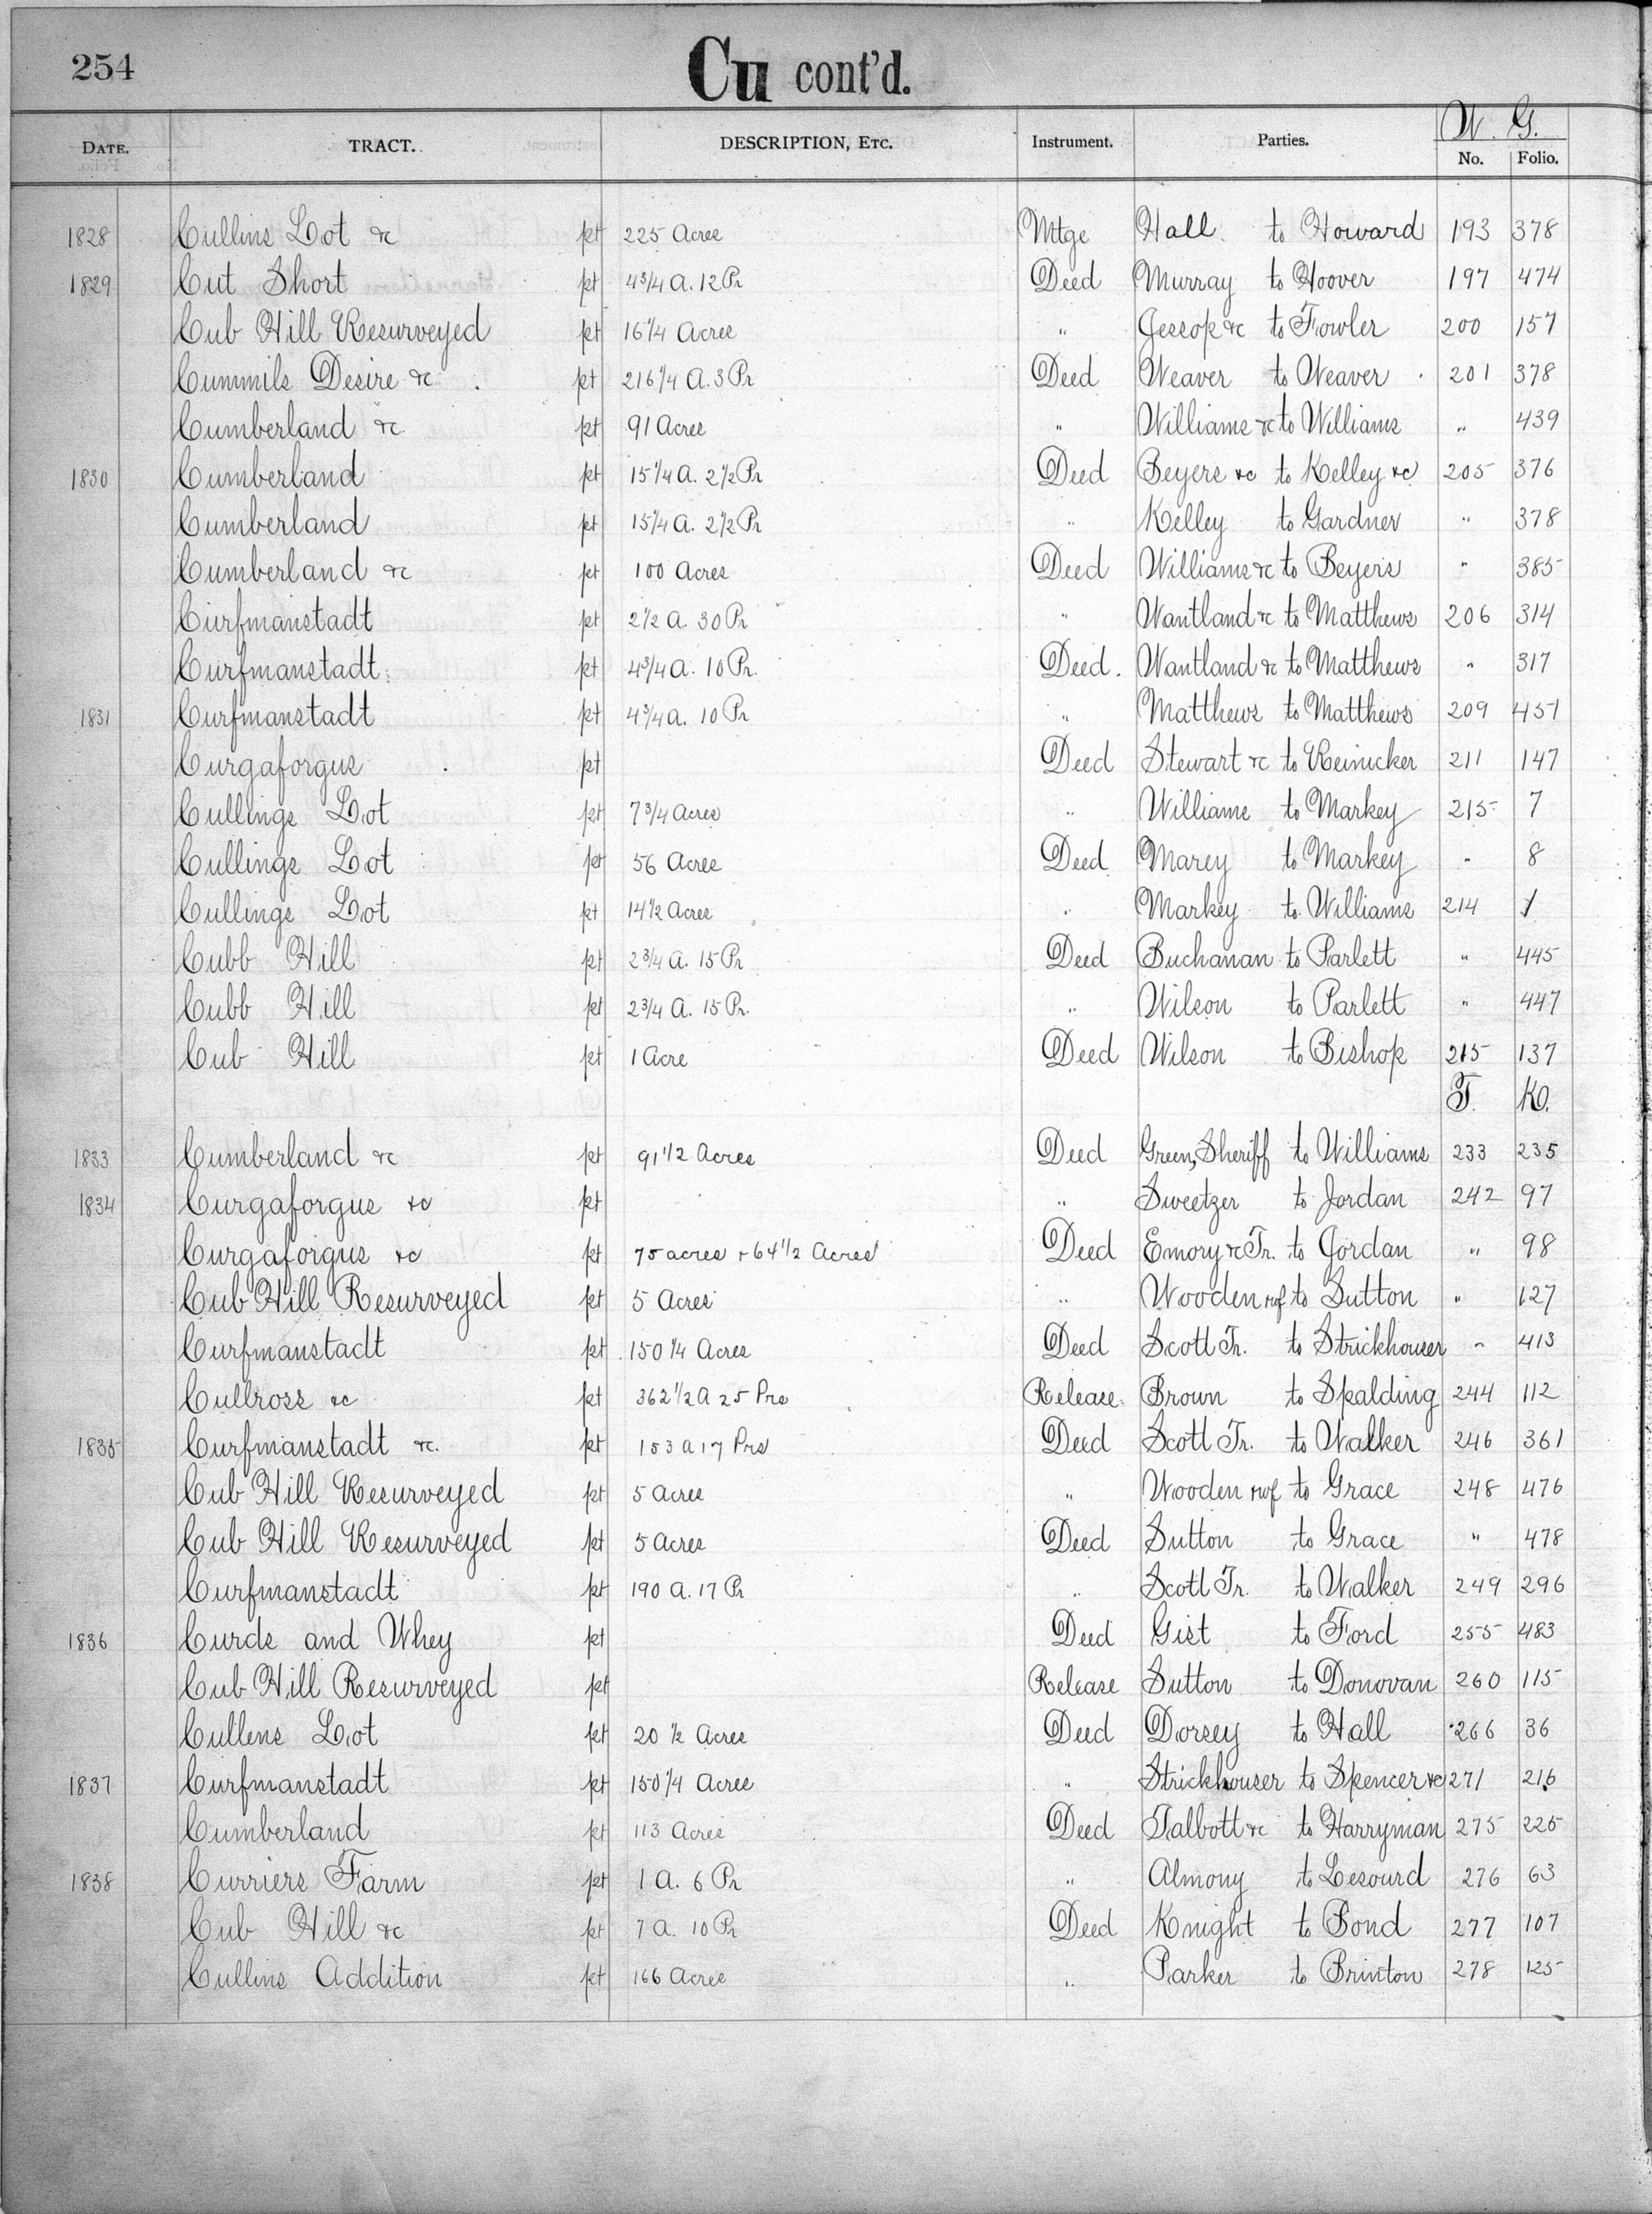 254
Cu cont'd.
W. G.
DATE. TRACT. DESCRIPTION, ETC. Instrument. Parties. No. Folio.
1828 Cullins Lot &c pt 225 Acres Mtge Hall to Howard 193 378
1829 Cut Short pt 4 3/4 A. 12 Pr Deed Murray to Hoover 197 474
Cub Hill Resurveyed pt 16 1/4 Acres " Jessop &c to Fowler 200 157
Cummils Desire &c pt 216 1/4 A. 3 Pr Deed Weaver to Weaver 201 378
Cumberland &c pt 91 Acres " Williams &c to Williams " 439
1830 Cumberland pt 15 1/4 A. 2 1/2 Pr Deed Beyers &c to Kelley &c 205 376
Cumberland pt 15 1/4 A. 2 1/2 Pr " Kelley to Gardner " 378
Cumberland &c pt 100 Acres Deed Williams &c to Beyers " 385
Curfmanstadt pt 2 1/2 A. 30 Pr " Wantland &c to Matthews 206 314
Curfmanstadt pt 4 3/4 A. 10 Pr. Deed. Wantland &c to Matthews " 317
1831 Curfmanstadt pt 4 3/4 A. 10 Pr " Matthews to Matthews 209 451
Curgaforgus pt Deed Stewart &c to Reinicker 211 147
Cullings Lot pt 7 3/4 Acres " Williams to Markey 215 7
Cullings Lot pt 56 Acres Deed Marey to Markey " 8
Cullings Lot pt 14 1/2 Acres " Markey to Williams 214 1
Cubb Hill pt 2 3/4 A. 15 Pr Deed Buchanan to Parlett " 445
Cubb Hill pt 2 3/4 A. 15 Pr. " Wilson to Parlett " 447
Cub Hill pt 1 Acre Deed Wilson to Bishop 215 137
T. K.
1833 Cumberland &c pt 91 1/2 Acres Deed Green, Sheriff to Williams 233 235
1834 Curgaforgus &c pt " Sweetzer to Jordan 242 97
Curgaforgus &c pt 75 acres + 64 1/2 Acres Deed Emory &c Tr. to Jordan " 98
Cub Hill Resurveyed pt 5 Acres " Wooden &wf to Sutton " 127
Curfmanstadt pt 150 1/4 Acres Deed Scott Tr. to Strickhouser " 413
Cullross &c pt 362 1/2 A 25 Prs Release Brown to Spalding 244 112
1835 Curfmanstadt &c. pt 153 A 17 Prs Deed Scott Tr. to Walker 246 361
Cub Hill Resurveyed pt 5 Acres " Wooden &wf to Grace 248 476
Cub Hill Resurveyed pt 5 Acres Deed Sutton to Grace " 478
Curfmanstadt pt 190 A. 17 Pr " Scott Tr. to Walker 249 296
1836 Curds and Whey pt Deed Gist to Ford 255 483
Cub Hill Resurveyed pt Release Sutton to Donovan 260 115
Cullens Lot pt 20 1/2 Acres Deed Dorsey to Hall 266 36
1837 Curfmanstadt pt 150 1/4 Acres " Strickhouser to Spencer &c 271 216
Cumberland pt 113 Acres Deed Talbott &c to Harryman 275 225
1838 Curriers Farm pt 1 A. 6 Pr " Almony to Lesourd 276 63
Cub Hill &c pt 7 A. 10 Pr Deed Knight to Bond 277 107
Cullins Addition pt 166 Acres " Parker to Brinton 278 125